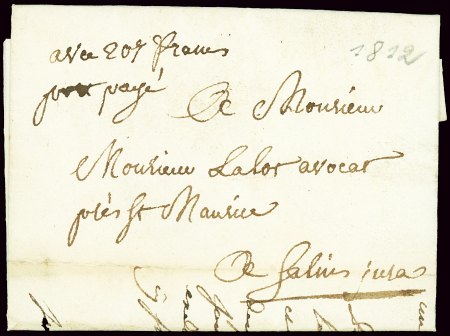 avec 207 francs
1812
port payé
A Monsieur
Monsieur Lalos avocat
près St Maurice
A Salins jura